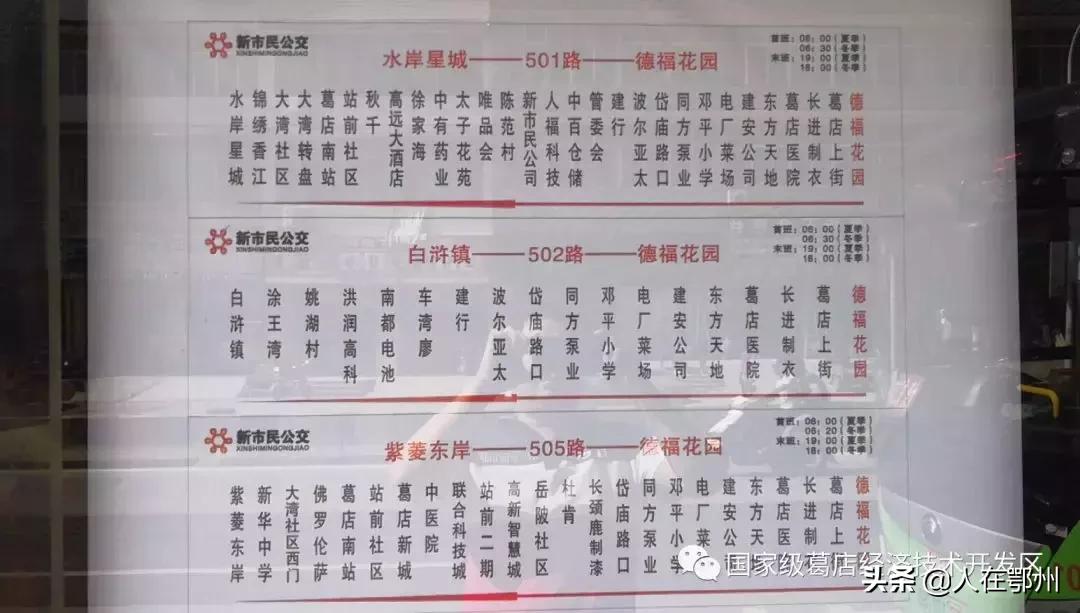 新市民公交
XINSHIMINGONGJIAO
水岸星城——501路——德福花园
首班：06：00（夏季）
06：30（冬季）
末班：19：00（夏季）
18：00（冬季）
水岸星城
锦绣香江
大湾社区
大湾转盘
葛店南站
站前社区
秋千
高远大酒店
徐家海
中有药业
太子花苑
唯品会
陈范村
新市民公司
人福科技
中百仓储
管委会
建行
波尔亚太
岱庙路口
同方泵业
邓平小学
电厂菜场
建安公司
东方天地
葛店医院
长进制衣
葛店上街
德福花园
新市民公交
XINSHIMINGONGJIAO
白浒镇——502路——德福花园
首班：06：00（夏季）
06：30（冬季）
末班：19：00（夏季）
18：00（冬季）
白浒镇
涂王湾
姚湖村
洪润高科
南都电池
车湾廖
建行
波尔亚太
岱庙路口
同方泵业
邓平小学
电厂菜场
建安公司
东方天地
葛店医院
长进制衣
葛店上街
德福花园
新市民公交
XINSHIMINGONGJIAO
紫菱东岸——505路——德福花园
首班：06：00（夏季）
06：20（冬季）
末班：19：00（夏季）
18：00（冬季）
紫菱东岸
新华中学
大湾社区西门
佛罗伦萨
葛店南站
站前社区
葛店新城
中医院
联合科技城
站前二期
高新智慧城
岳陂社区
杜肯
长颈鹿制漆
岱庙路口
同方泵业
邓平小学
电厂菜
建安公
东方天
葛店医
长进制
葛店上
德福花
国家级葛店经济技术开发区
头条 @人在鄂州